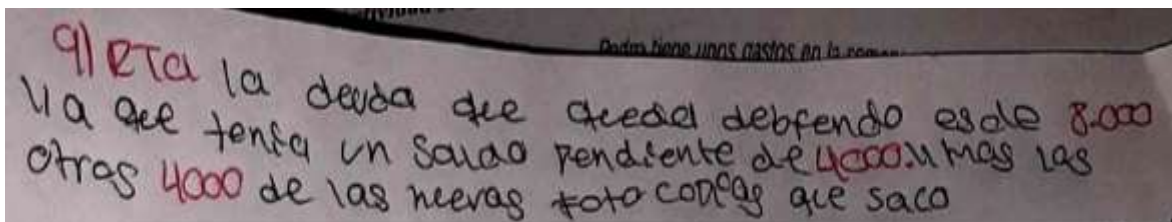 Pedro tiene unos gastos en la
9) RTa la deuda que queda debfendo esde 8.000
ya que tenfa un saldo pendfente de 4000. y mas las
otras 4000 de las nuevas foto copfas que saco